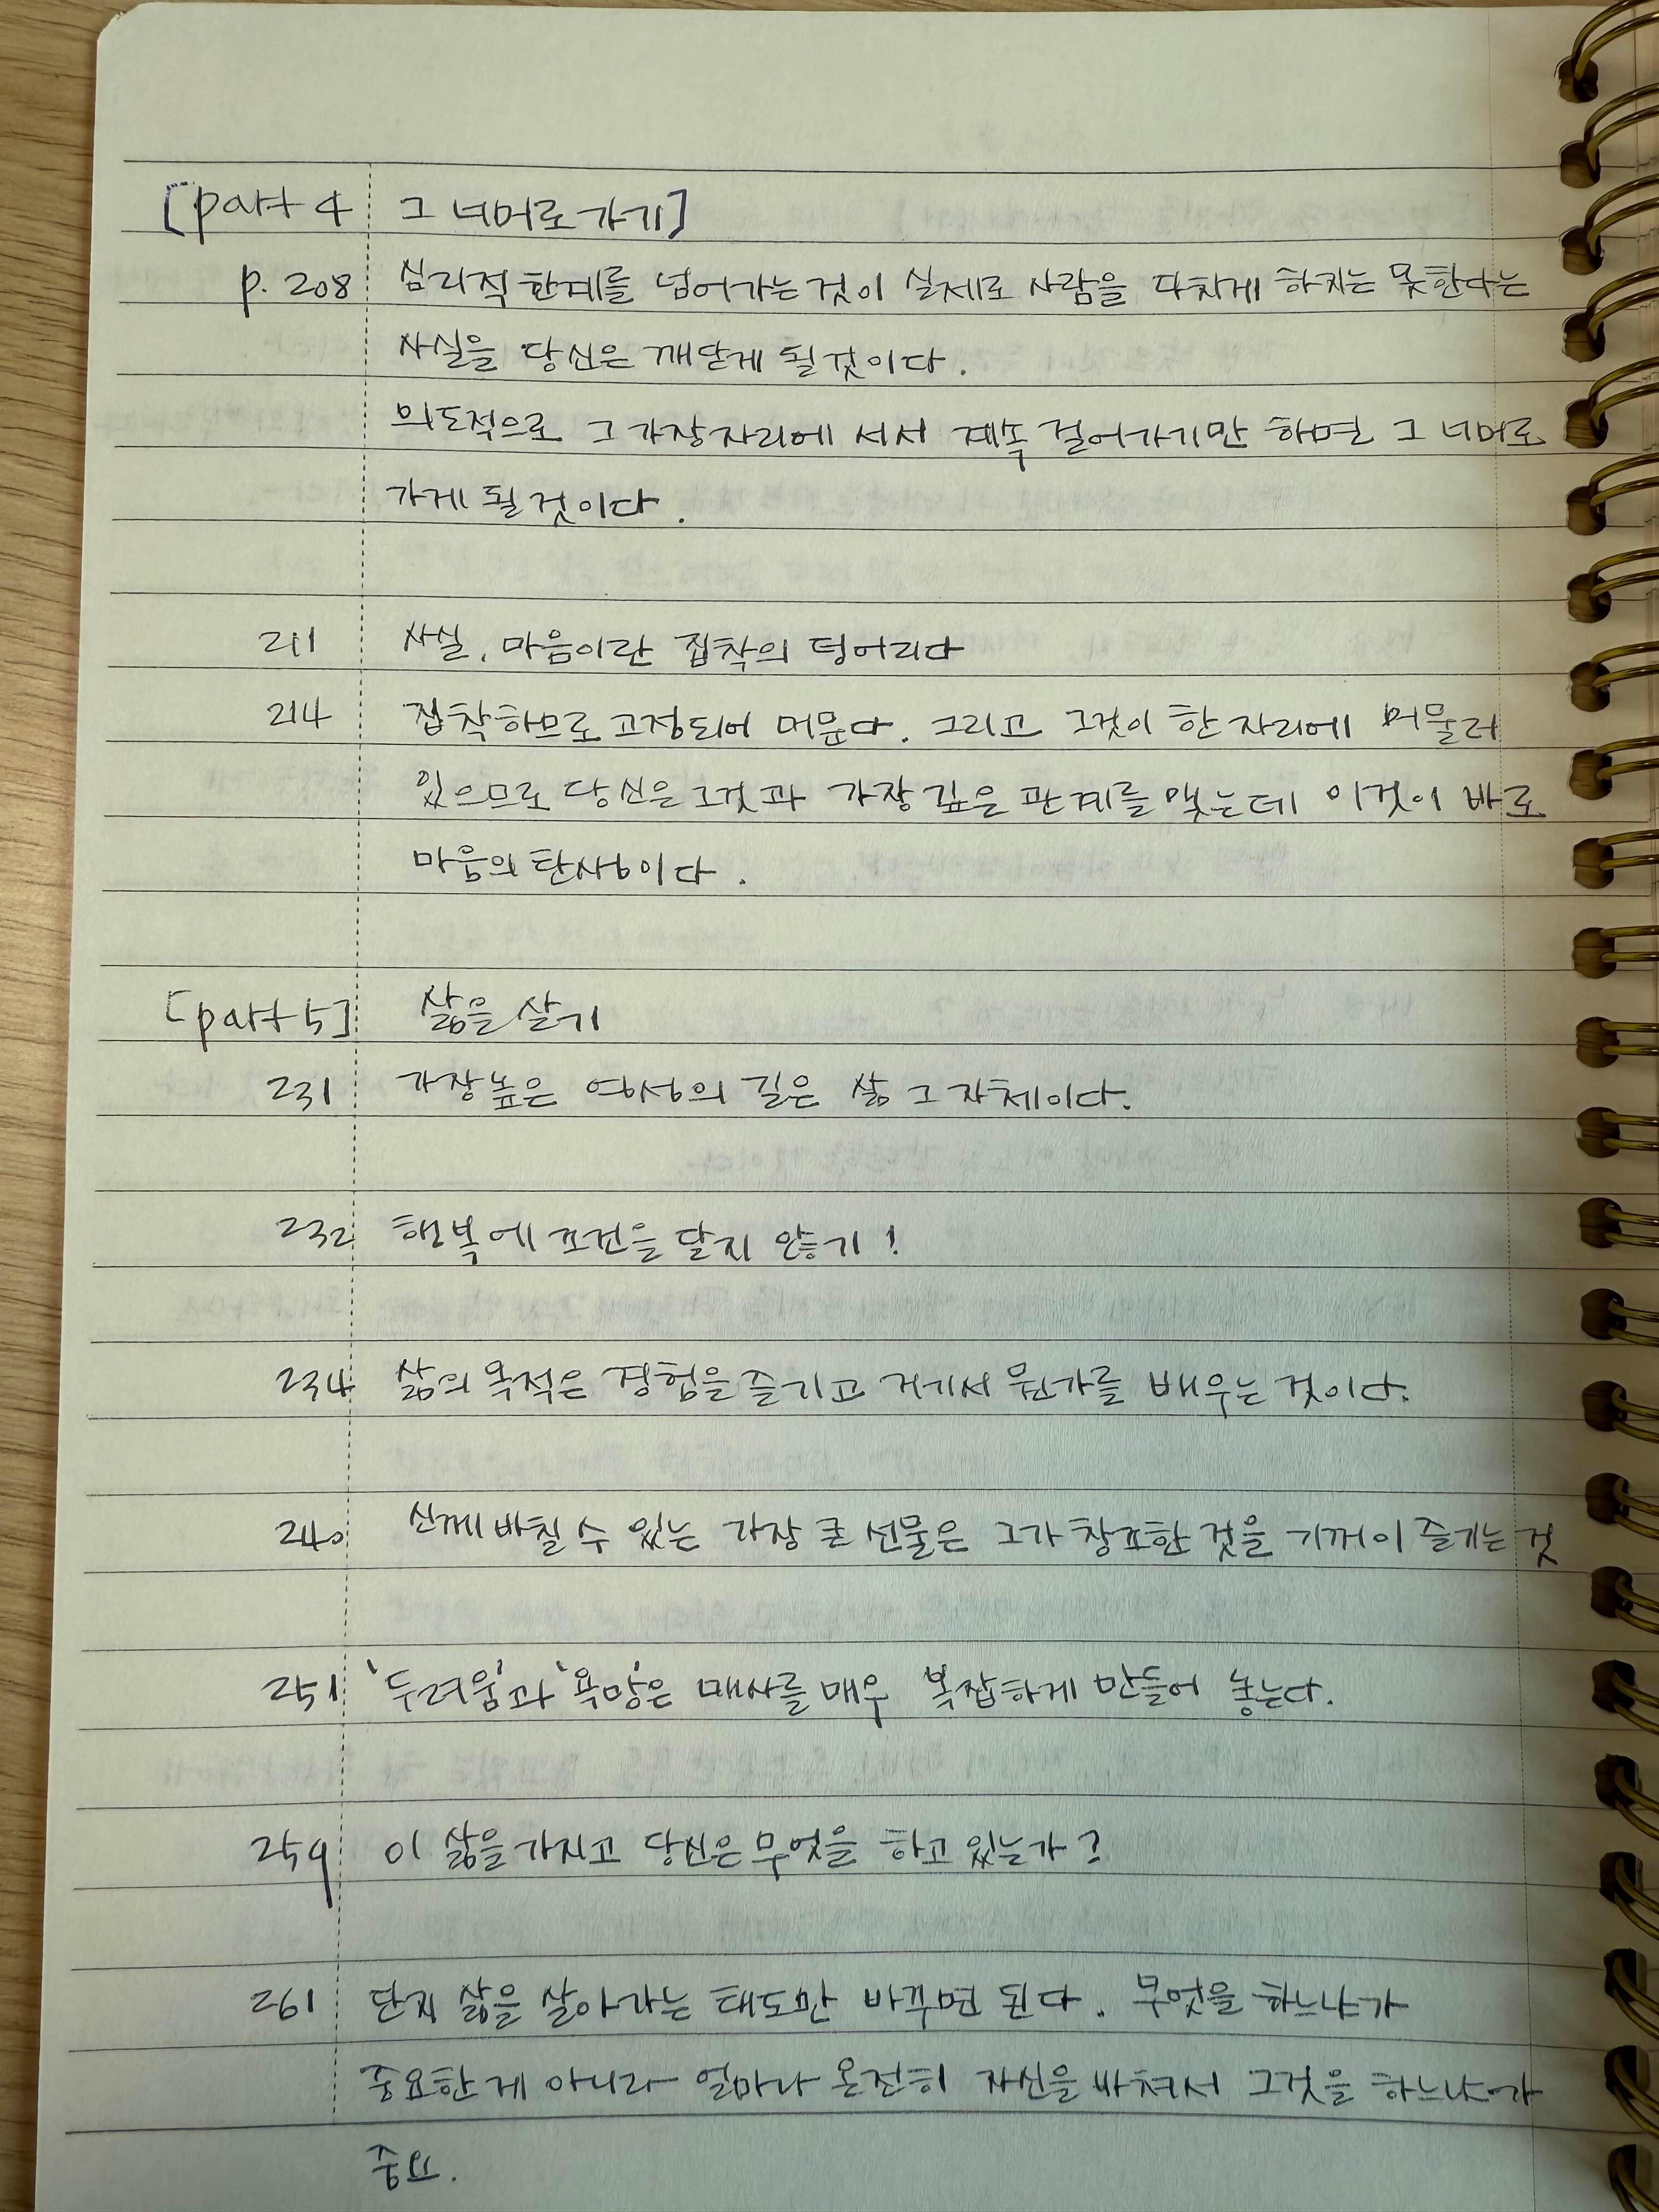 [part 4 그 너머로 가기]
p. 208 심리적 한계를 넘어가는 것이 실제로 사람을 다치게 하지는 못한다는
사실을 당신은 깨닫게 될 것이다.
의도적으로 그 가장자리에 서서 계속 걸어가기만 하면 그 너머로
가게 될 것이다.
211 사실, 마음이란 집착의 덩어리다
214 집착하므로 고정되어 머문다. 그리고 그것이 한 자리에 머물러
있으므로 당신은 그것과 가장 깊은 관계를 맺는데 이것이 바로
마음의 탄생이다.
[part 5] 삶을 살기
231 가장 높은 영성의 길은 삶 그 자체이다.
232 행복에 조건을 달지 않기!
234 삶의 목적은 경험을 즐기고 거기서 뭔가를 배우는 것이다.
240 신께 바칠 수 있는 가장 큰 선물은 그가 창조한 것을 기꺼이 즐기는 것
251 '두려움'과 '욕망'은 매사를 매우 복잡하게 만들어 놓는다.
259 이 삶을 가지고 당신은 무엇을 하고 있는가?
261 단지 삶을 살아가는 태도만 바꾸면 된다. 무엇을 하느냐가
중요한 게 아니라 얼마나 온전히 자신을 바쳐서 그것을 하느냐가
중요.